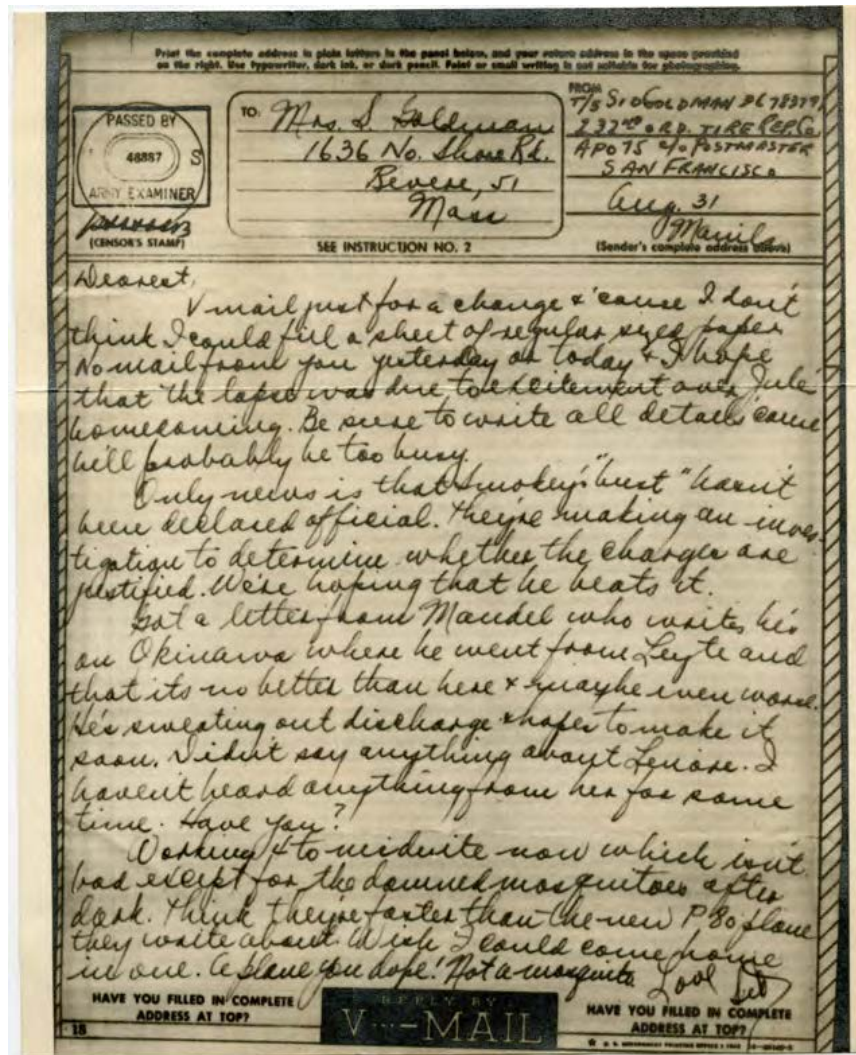 Print the complete address in plain letters in the panel below, and your return address in the space provided
on the right. Use typewriter, dark ink, or dark pencil. Faint or small writing is not suitable for photographing.
PASSED BY
46887 S
ARMY EXAMINER
(CENSOR'S STAMP)
TO: Mrs. S. Goldman
1636 No. Shore Rd.
Revere, 51
Mass
SEE INSTRUCTION NO. 2
FROM
T/5 SID GOLDMAN
232nd ORD. TIRE REP. Co
APO 75 c/o POSTMASTER
SAN FRANCISCO
Aug. 31
Manila
(Sender's complete address above)
Dearest,
V mail just for a change & 'cause I don't
think I could fill a sheet of regular sized paper
No mail from you yesterday or today & I hope
that the lapse was due to excitement over Jule'
homecoming. Be sure to write all details cause
he'll probably be too busy.
Only news is that Smokey's "bust" hasn't
been declared official. They're making an inves-
tigation to determine whether the charges are
justified. We're hoping that he beats it.
Got a letter from Mandel who writes he's
on Okinawa where he went from Leyte and
that its no better than here & maybe even worse.
He's sweating out discharge & hopes to make it
soon. Didn't say anything about Lenore. I
haven't heard anything from her for some
time. Have you?
Working 4 to midnite now which isn't
bad except for the damned mosquitoes after
dark. Think they're faster than the new P 80 plane
they write about. Wish I could come home
in one. A plane you dope! Not a mosquito Love Sid
HAVE YOU FILLED IN COMPLETE
ADDRESS AT TOP?
REPLY BY
V···-MAIL
HAVE YOU FILLED IN COMPLETE
ADDRESS AT TOP?
18